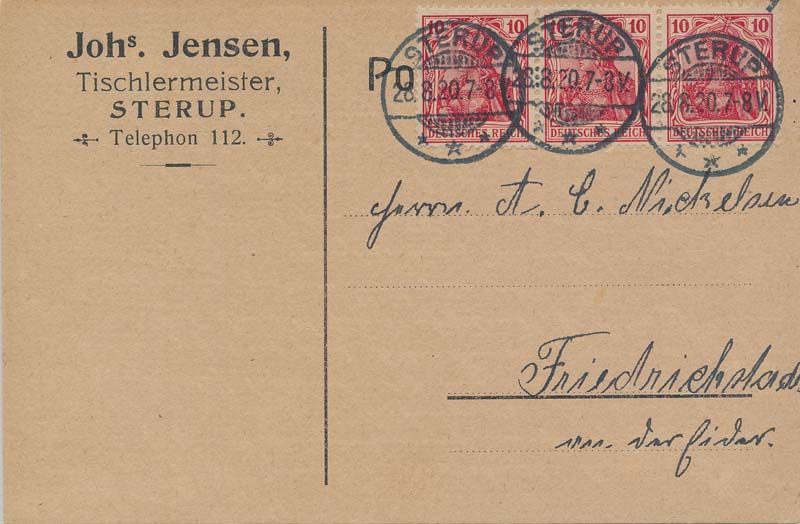 Joh<sup>s</sup>. Jensen,
Tischlermeister,
STERUP.
Telephon 112.
PO
10 10 10 10
STERUP STERUP STERUP
28.8.20.7-8V. 28.8.20.7-8V. 28.8.20.7-8V.
DEUTSCHES REICH DEUTSCHES REICH DEUTSCHES REICH
Herrn A. C. Nickelsen
Friedrichstad
an der Eider.